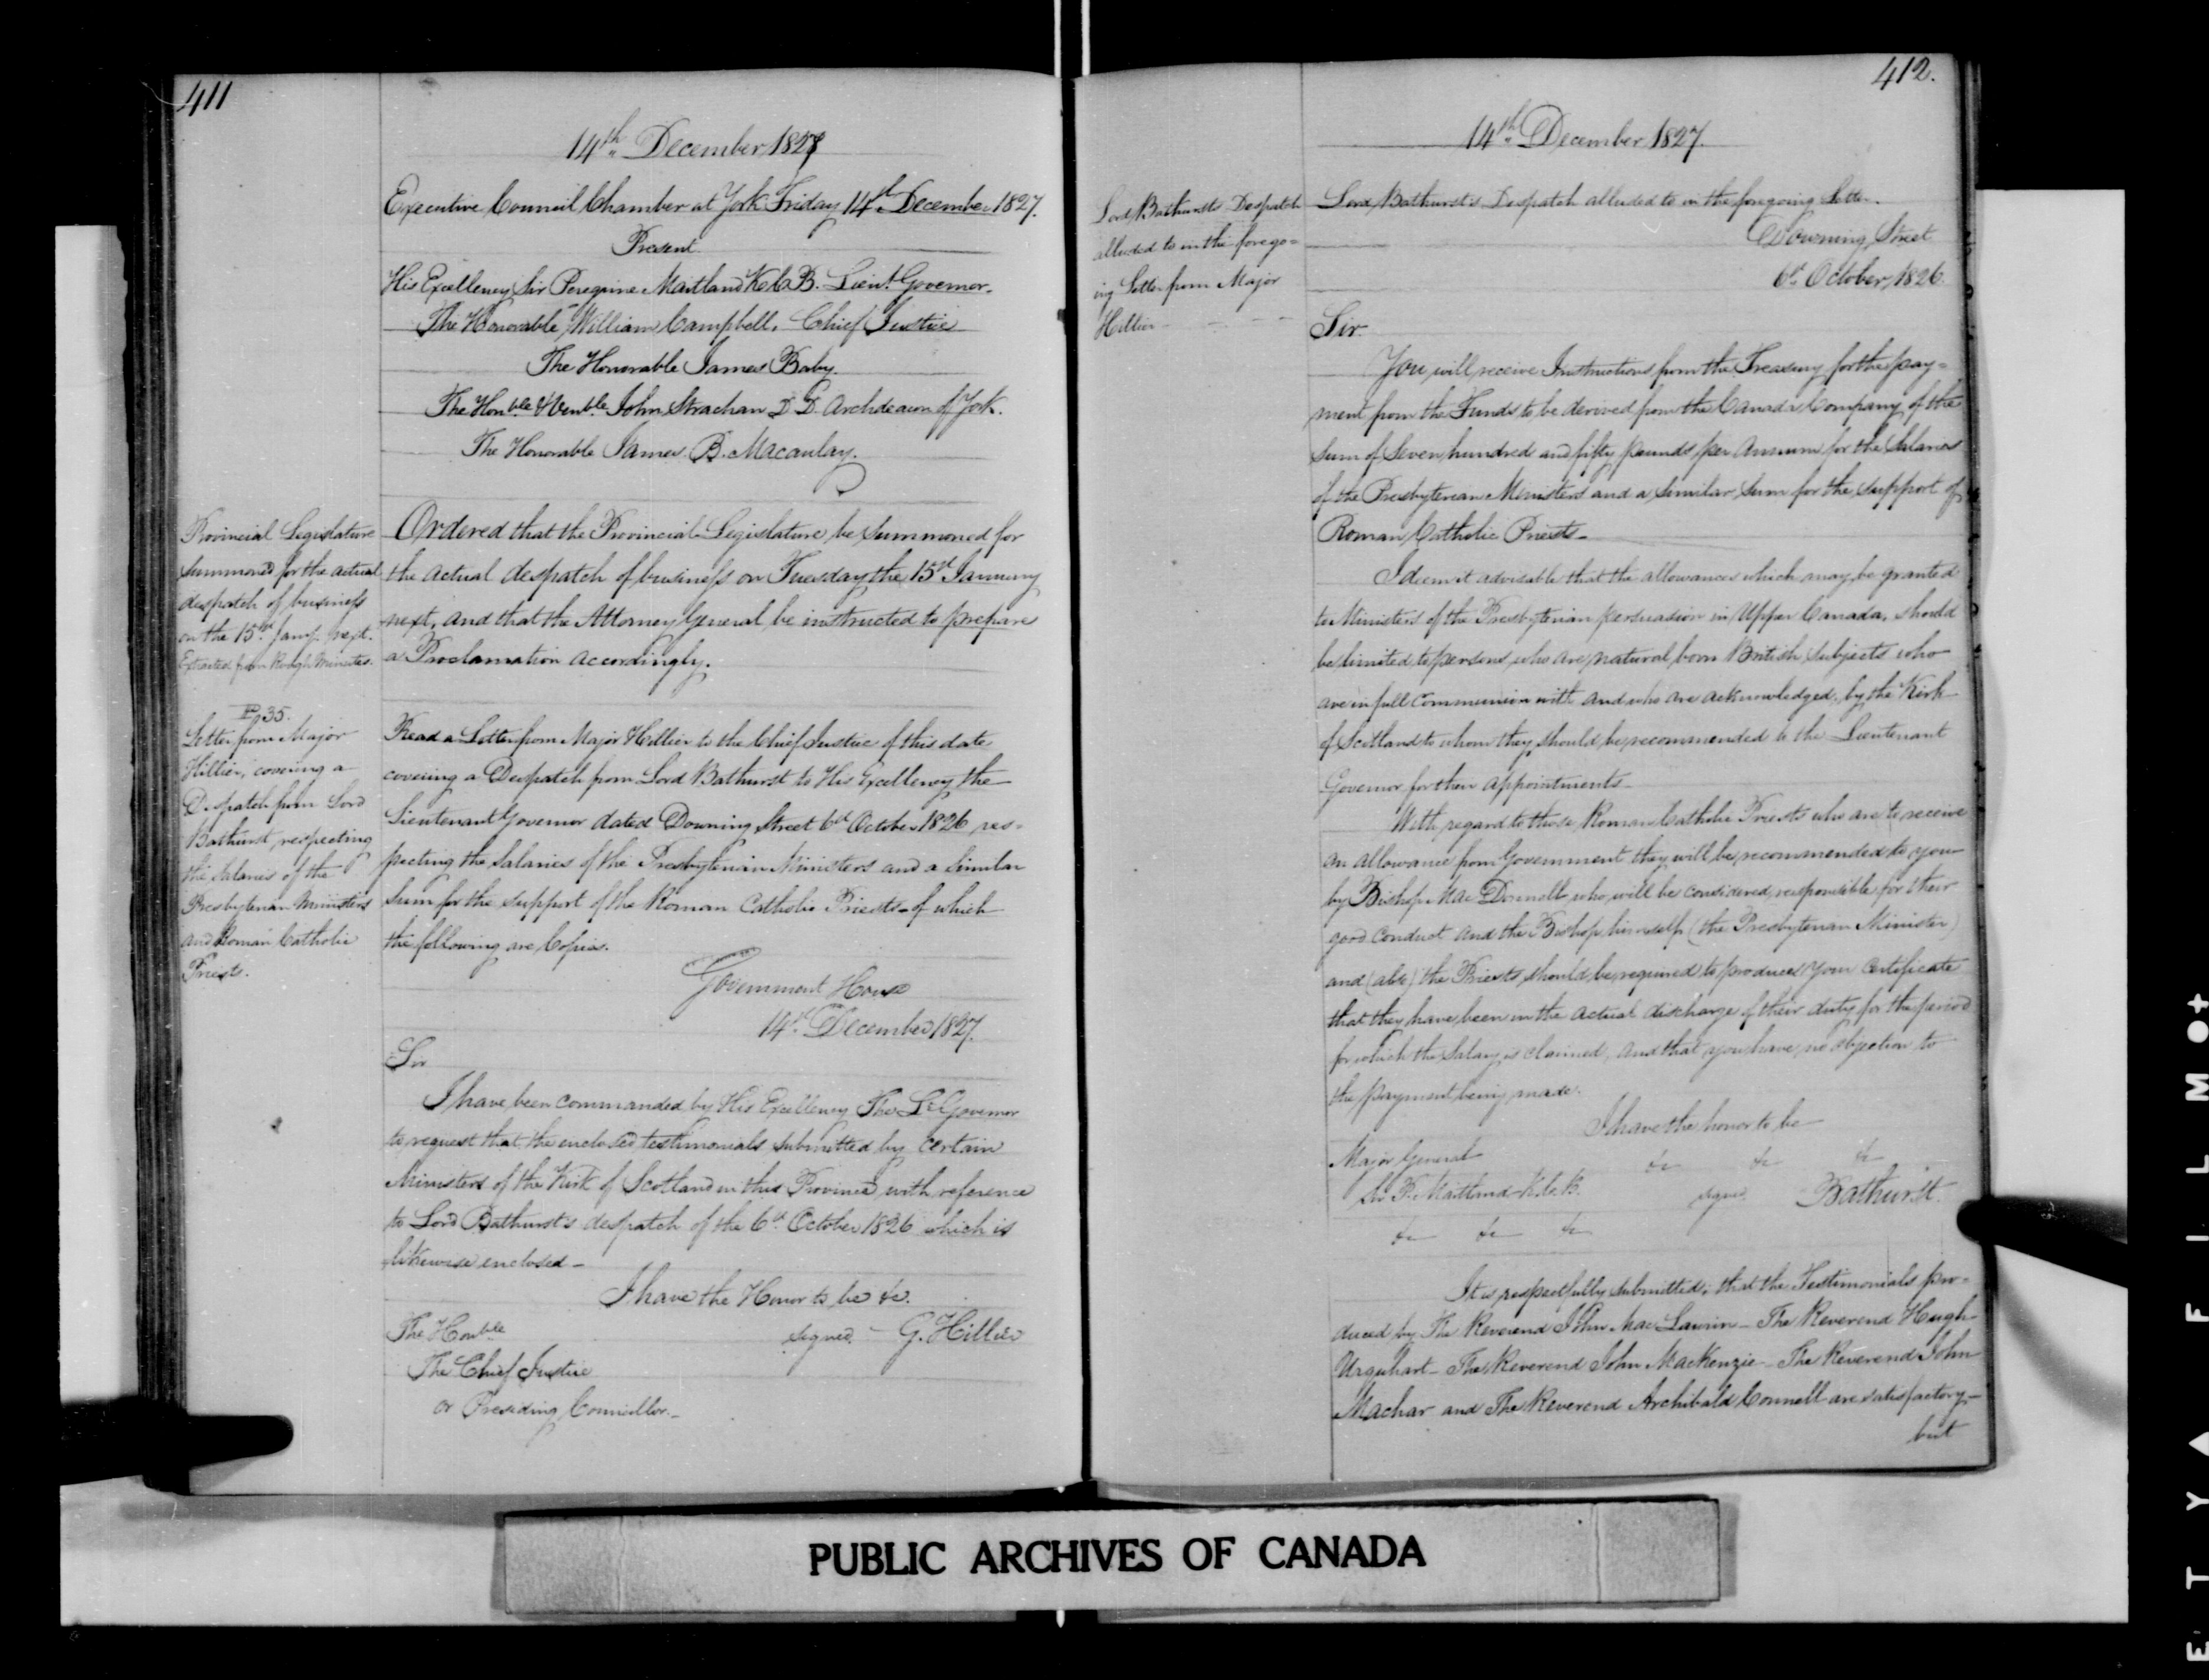 411
14th December 1827
Executive Council Chamber at York Friday 14th December 1827.
Present
His Excellency Sir Peregrine Maitland K.C.B. Lieut. Governor.
The Honorable William Campbell, Chief Justice
The Honorable James Baby.
The Honble & Venble John Strachan D.D. Archdeacon of York.
The Honorable James B. Macaulay.
Provincial Legislature
summoned for the actual
despatch of business
on the 15th Jany. next.
Extracted from Rough Minutes.
Ordered that the Provincial Legislature be summoned for
the actual despatch of business on Tuesday the 15th January
next, and that the Attorney General be instructed to prepare
a Proclamation accordingly.
P 35.
Letter from Major
Hillier, covering a
Despatch from Lord
Bathurst, respecting
the Salaries of the
Presbyterian Ministers
and Roman Catholic
Priests.
Read a Letter from Major Hillier to the Chief Justice of this date
covering a Despatch from Lord Bathurst to His Excellency the
Lieutenant Governor dated Downing Street 6th October 1826 res=
pecting the Salaries of the Presbyterian Ministers and a similar
sum for the support of the Roman Catholic Priests - of which
the following are Copies.
Government House
14th December 1827.
Sir
I have been commanded by His Excellency The Lt. Governor
to request that the enclosed testimonials submitted by certain
Ministers of the Kirk of Scotland in this Province, with reference
to Lord Bathurst's despatch of the 6th October 1826 which is
likewise enclosed -
I have the Honor to be &c.
The Honble
signed - G. Hillier
The Chief Justice
or Presiding Councillor. -
412.
14th December 1827.
Lord Bathursts Despatch
alluded to in the forego=
ing Letter from Major
Hillier - - - -
Lord Bathurst's Despatch alluded to in the foregoing Letter.
Downing Street
6th October 1826.
Sir.
You will receive Instructions from the Treasury for the pay=
ment from the Funds to be derived from the Canada Company of the
sum of Seven hundred and fifty pounds per Annum for the Salaries
of the Presbyterian Ministers and a similar sum for the support of
Roman Catholic Priests -
I deem it advisable that the allowances which may be granted
to Ministers of the Presbyterian persuasion in Upper Canada, should
be limited to persons who are natural born British subjects who
are in full communion with and who are acknowledged by the Kirk
of Scotland to whom they should be recommended to the Lieutenant
Governor for their appointments -
With regard to those Roman Catholic Priests who are to receive
an allowance from Government they will be recommended to you
by Bishop Mac Donnell who will be considered responsible for their
good conduct and the Bishop himself (the Presbyterian Minister)
and (also) the Priests should be required to produce your certificate
that they have been in the actual discharge of their duty for the period
for which the Salary is claimed, and that you have no objection to
the payment being made.
I have the honor to be
Major General
&c &c &c
Sir P. Maitland K.C.B.
signed Bathurst.
&c &c &c
It is respectfully submitted, that the Testimonials pro=
duced by The Reverend John Mac Laurin - The Reverend Hugh
Urquhart - The Reverend John MacKenzie - The Reverend John
Machar and The Reverend Archibald Connell are satisfactory -
but
PUBLIC ARCHIVES OF CANADA
E T Y ▲ F I L M